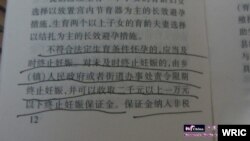 以放置宫内节育器为主的长效避孕
措施,生育两个以上子女的育龄夫妻选
择以结扎为主的长效避孕措施。
不符合法定生育条件怀孕的,应当及
时终止妊娠。对未及时终止妊娠的,由乡
(镇)人民政府或者街道办事处责令限期
终止妊娠,并可以收取二千元以上一万元
以下终止妊娠保证金。保证金纳入非税
12
WRIC